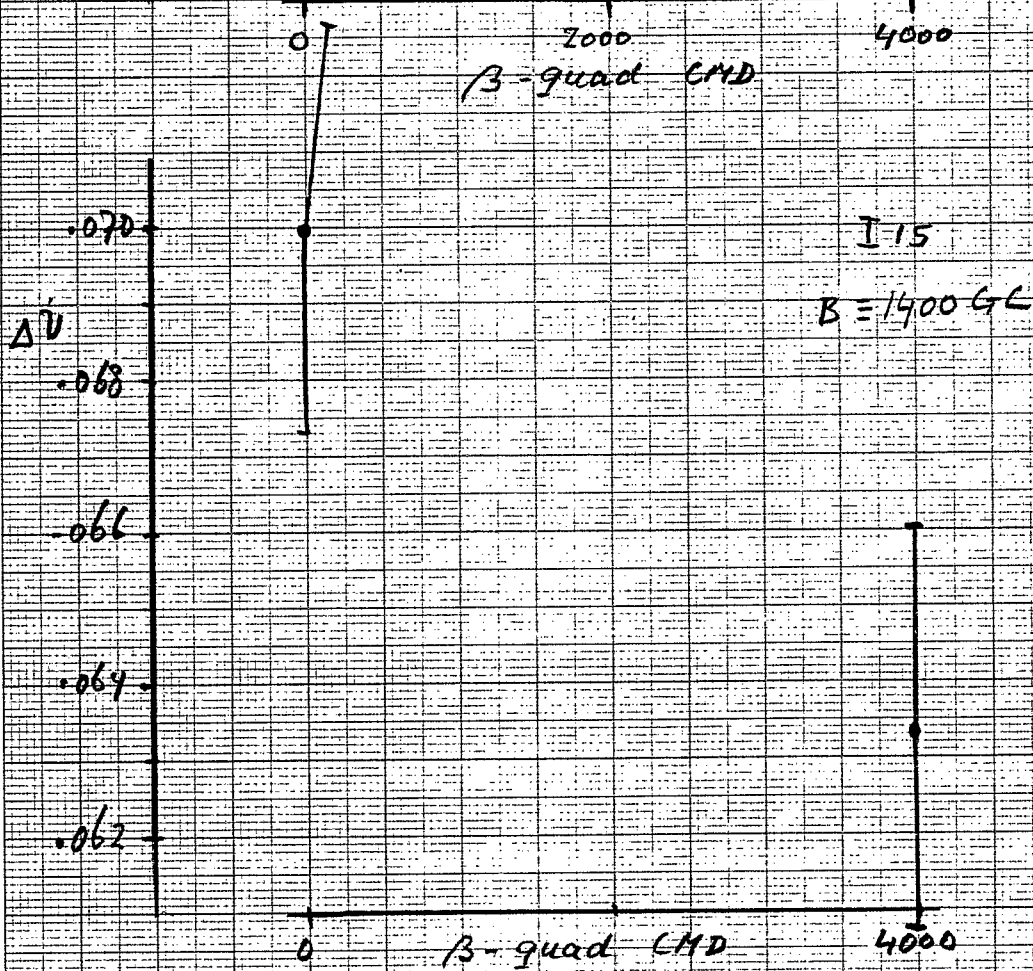 0 2000 4000
β-quad CMD
.070
I 15
B = 1400 GC
Δν
.068
.066
.064
.062
0 β-quad CMD 4000